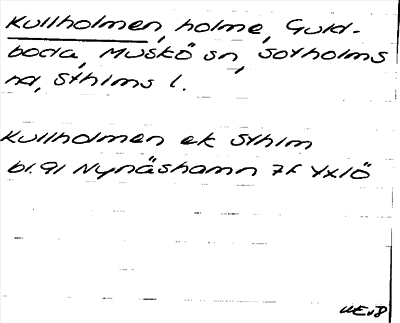 Kullholmen, holme, Guld-
boda, Muskö sn, Sotholms
hd, Sthlms l.
Kullholmen ek Sthlm
bl. 91 Nynäshamn 7f Yxlö